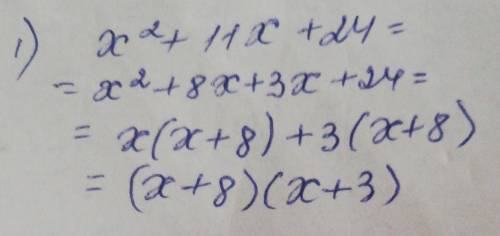 1) x² + 11x + 24 =
= x² + 8x + 3x + 24 =
= x(x+8) + 3(x+8)
= (x+8)(x+3)